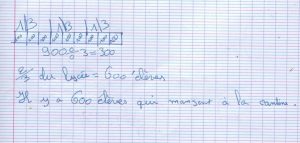 1/3 1/3 1/3
900 : 3 = 300
2/3 du lycée = 600 élèves
Il y a 600 élèves qui mangent à la cantine.